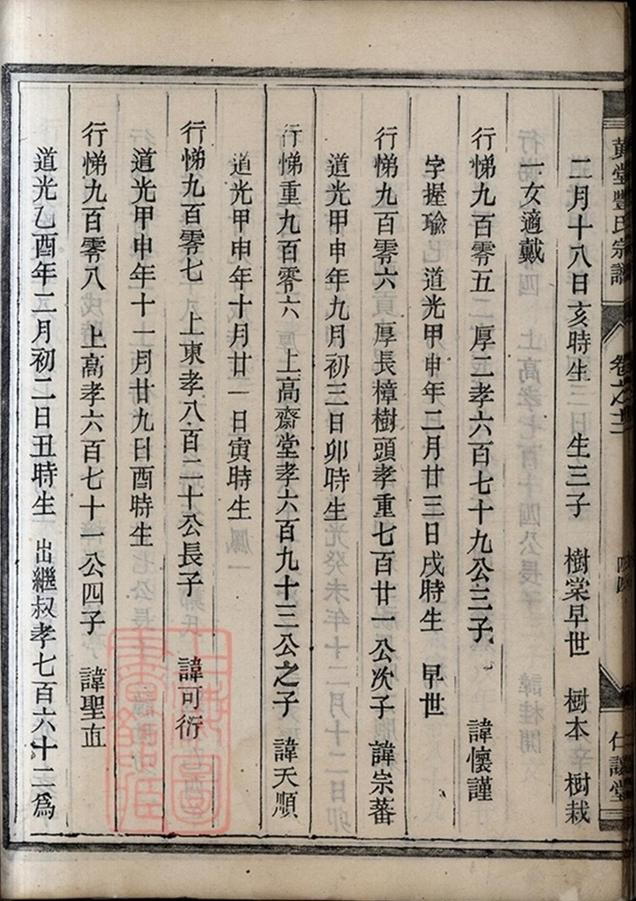 黃堂豐氏宗譜
卷之
仁讓堂
二月十八日亥時生 生三子 樹棠早世 樹本 樹栽
一女適戴
行悌九百零五 厚二孝六百七十九公三子 諱懷謹
字握瑜 道光甲申年二月廿三日戌時生 早世
行悌九百零六 厚長樟樹頭孝重七百廿一公次子 諱宗蕃
道光甲申年九月初三日卯時生
行悌重九百零六 上高齋堂孝六百九十三公之子 諱天順
道光甲申年十月廿一日寅時生
行悌九百零七 上東孝八百二十公長子 諱可衍
道光甲申年十一月廿九日酉時生
行悌九百零八 上高孝六百七十一公四子 諱聖直
道光乙酉年二月初二日丑時生 出繼叔孝七百六十二爲